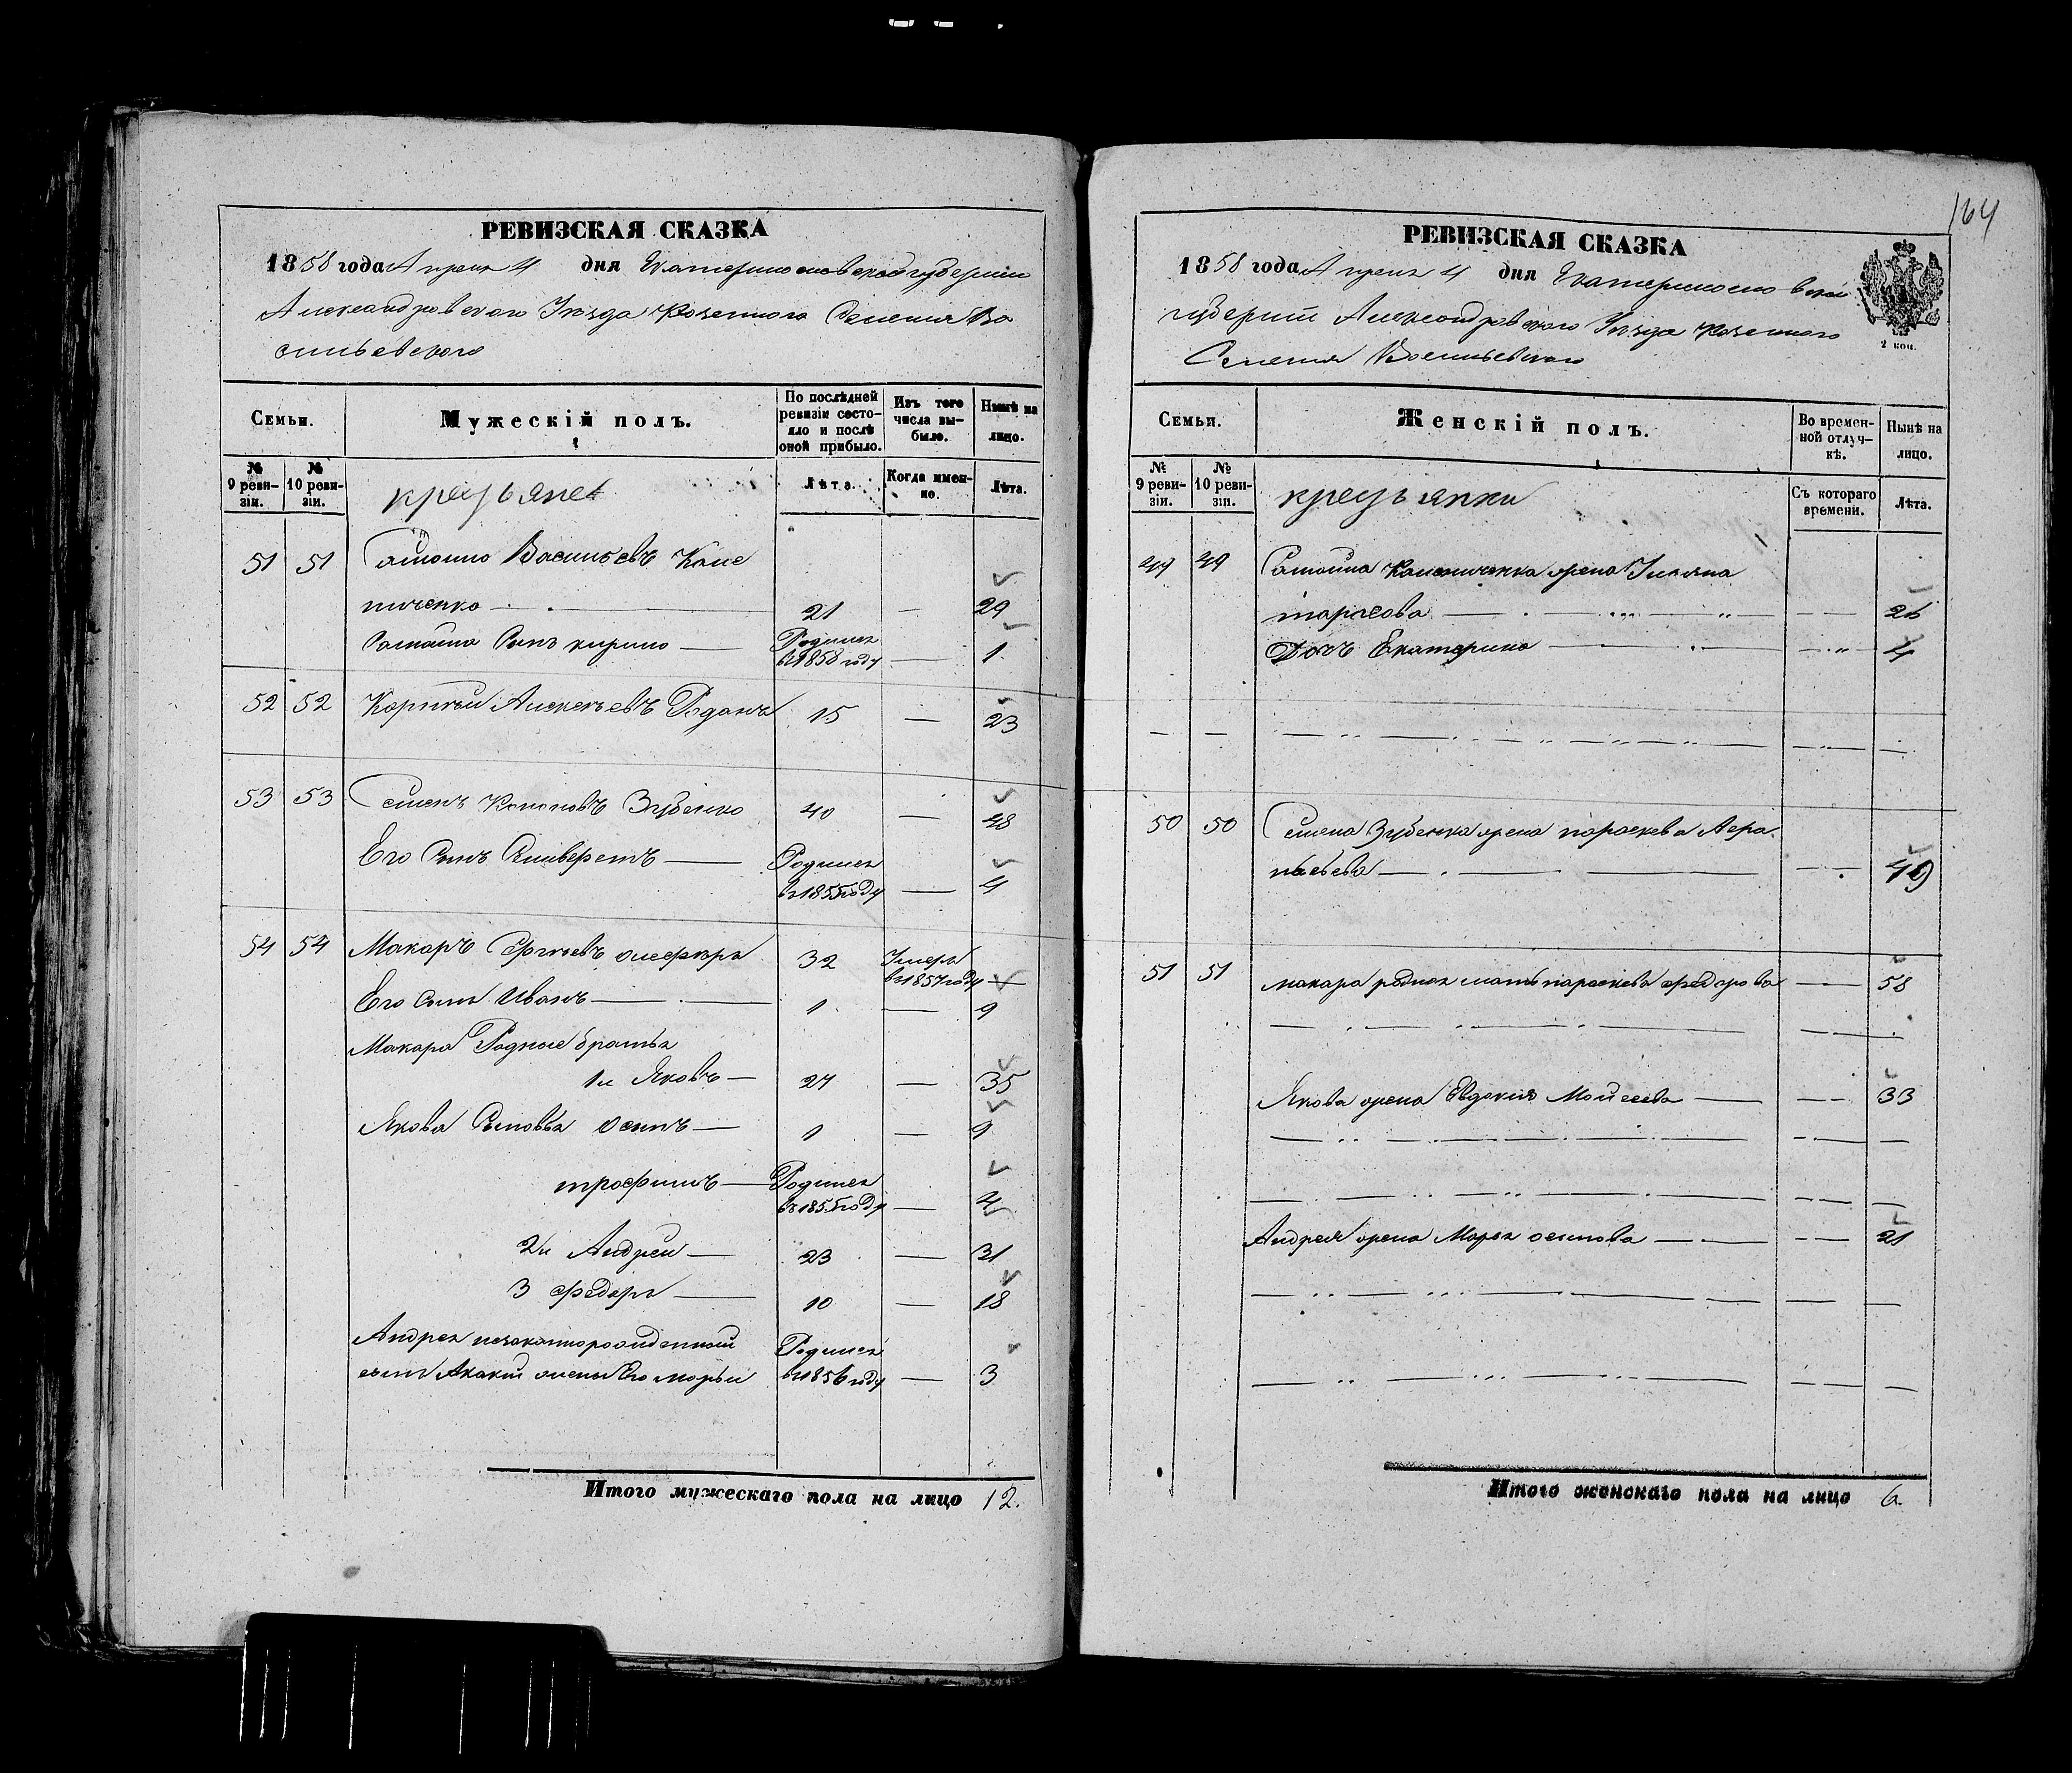 164
РЕВИЗСКАЯ СКАЗКА
1858 года Апреля 4 дня Екатеринословской губернии
Александровского Уезда Козенного Селения Ва
сильевского
Семьи.
Мужескій полъ.
По послѣдней ревизіи состояло и послѣ оной прибыло.
Изъ того числа выбыло.
Нынѣ на лицо.
№ 9 ревизіи.
№ 10 ревизіи.
Лѣта.
Когда именно.
Лѣта.
51 51 Васильевъ Коле
ниченко 21 — 29
Сынъ кирило — Родился
в 1858 году — 1
52 52 Алексеевъ Родакъ 15 — 23
53 53 Семенъ Кононовъ Зубенко 40 — 48
Его Сынъ Селиверстъ — Родился
в 1855 году — 4
54 54 Макаръ Сергеевъ олефиръ 32 Умеръ
в 1857 году —
Его Сынъ Иванъ — 1 — 9
Макара Родные братья
1й Яковъ — 27 — 35
Якова Сыновья осипъ — 1 — 9
трофимъ — Родился
в 1855 году — 4
2й Андрей — 23 — 31
3 федоръ — 10 — 18
Андрея незаконнорожденный Родился
сынъ Акакий жены Его марьи в 1856 году — 3
Итого мужескаго пола на лицо 12.
РЕВИЗСКАЯ СКАЗКА
1858 года Апреля 4 дня Екатеринословской
губернии Александровского Уезда Козенного
Селения Васильевского
2 коп.
Семьи.
Женскій полъ.
Во временной отлучкѣ.
Нынѣ на лицо.
№ 9 ревизіи.
№ 10 ревизіи.
Съ котораго времени.
Лѣта.
49 49 жена Ульяна
тарасова — 26
Дочъ Екатерина — 4
50 50 Семена Зубенка жена параскева
— 49
51 51 макара родная мать параскева федорова — 58
Якова жена Евдокия Мойсеева — 33
Андрея жена Марья осипова — 21
Итого женскаго пола на лицо 6.